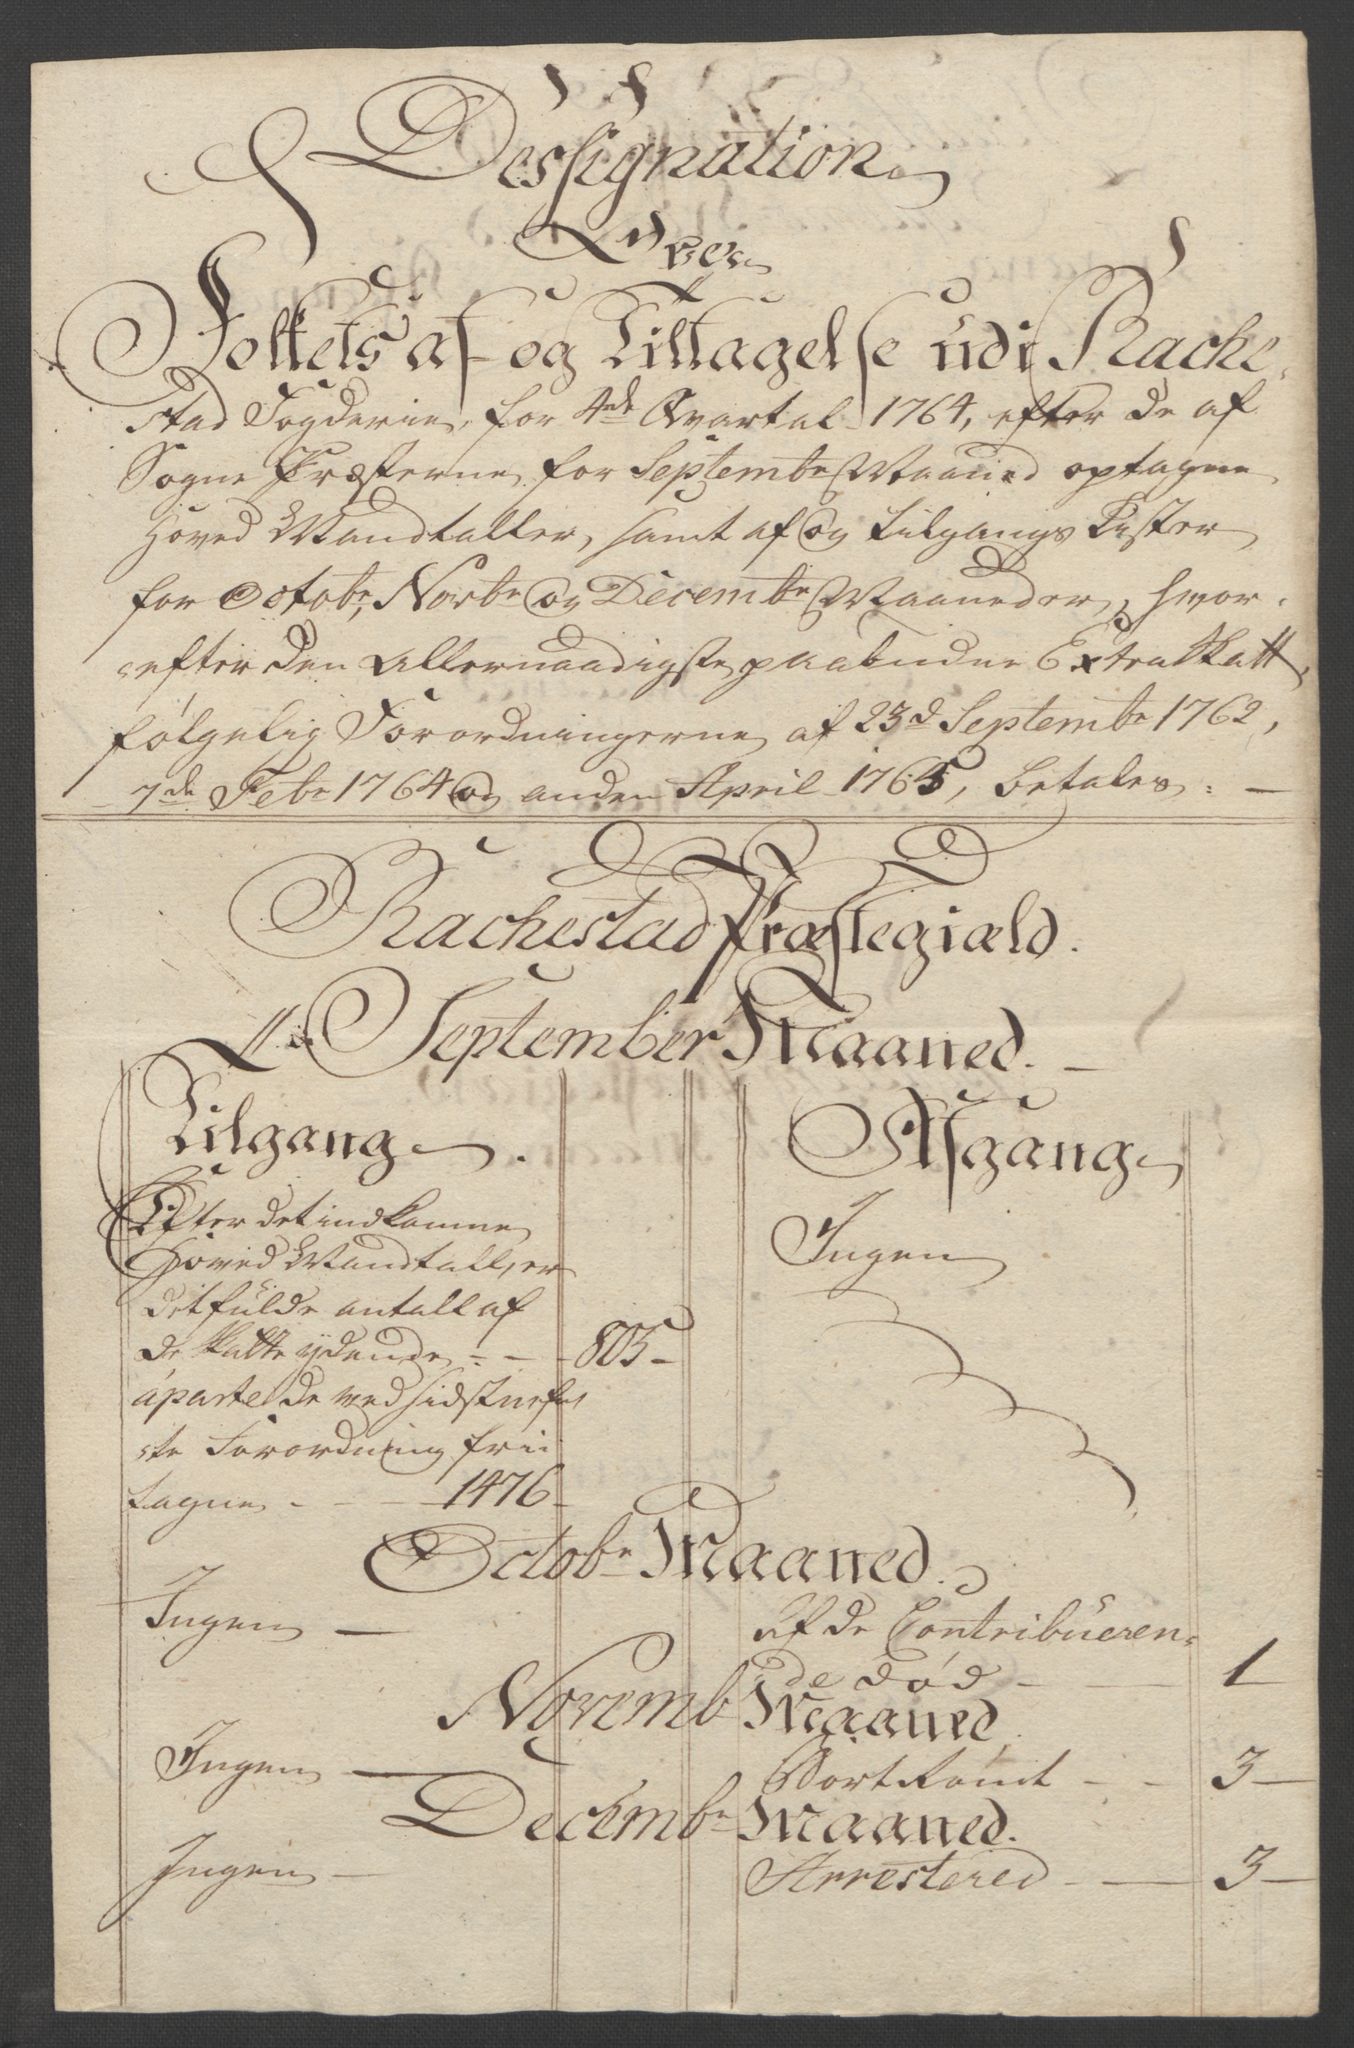 Dessignation
Over
Folkets af- og Tilltagelse udi Rache-
stad Fogderie, for 4de Qvartal 1764, efter de af
Sogne Præsterne for Septembr Maaned optagne
Hoved Mandtaller, samt af og tilgangs Lister
for Octobr, Novbr og Decembr Maaneder, hvor-
efter den Allernaadigste paabudne Extra Skatt,
følgelig Forordningerne af 23d Septembr 1762,
7de Febr 1764 og anden April 1765, betales: -
Rachestad Præstegiæld.
September Maaned. -
Tilgang. Afgang
Efter det indkomne Ingen
Hoved Mandtall, er
det fulde antall af
de skatte ydende - - - 805 -
áparte de ved sidst
ste Forordning frii
tagne - - - 1476 -
Octobr Maaned.
Ingen - Af de Contribueren-
de død - - 1
Novemb Maaned
Ingen - Bort Rømt - - 3 -
Decembr Maaned.
Ingen - Arrestered - - 3 -